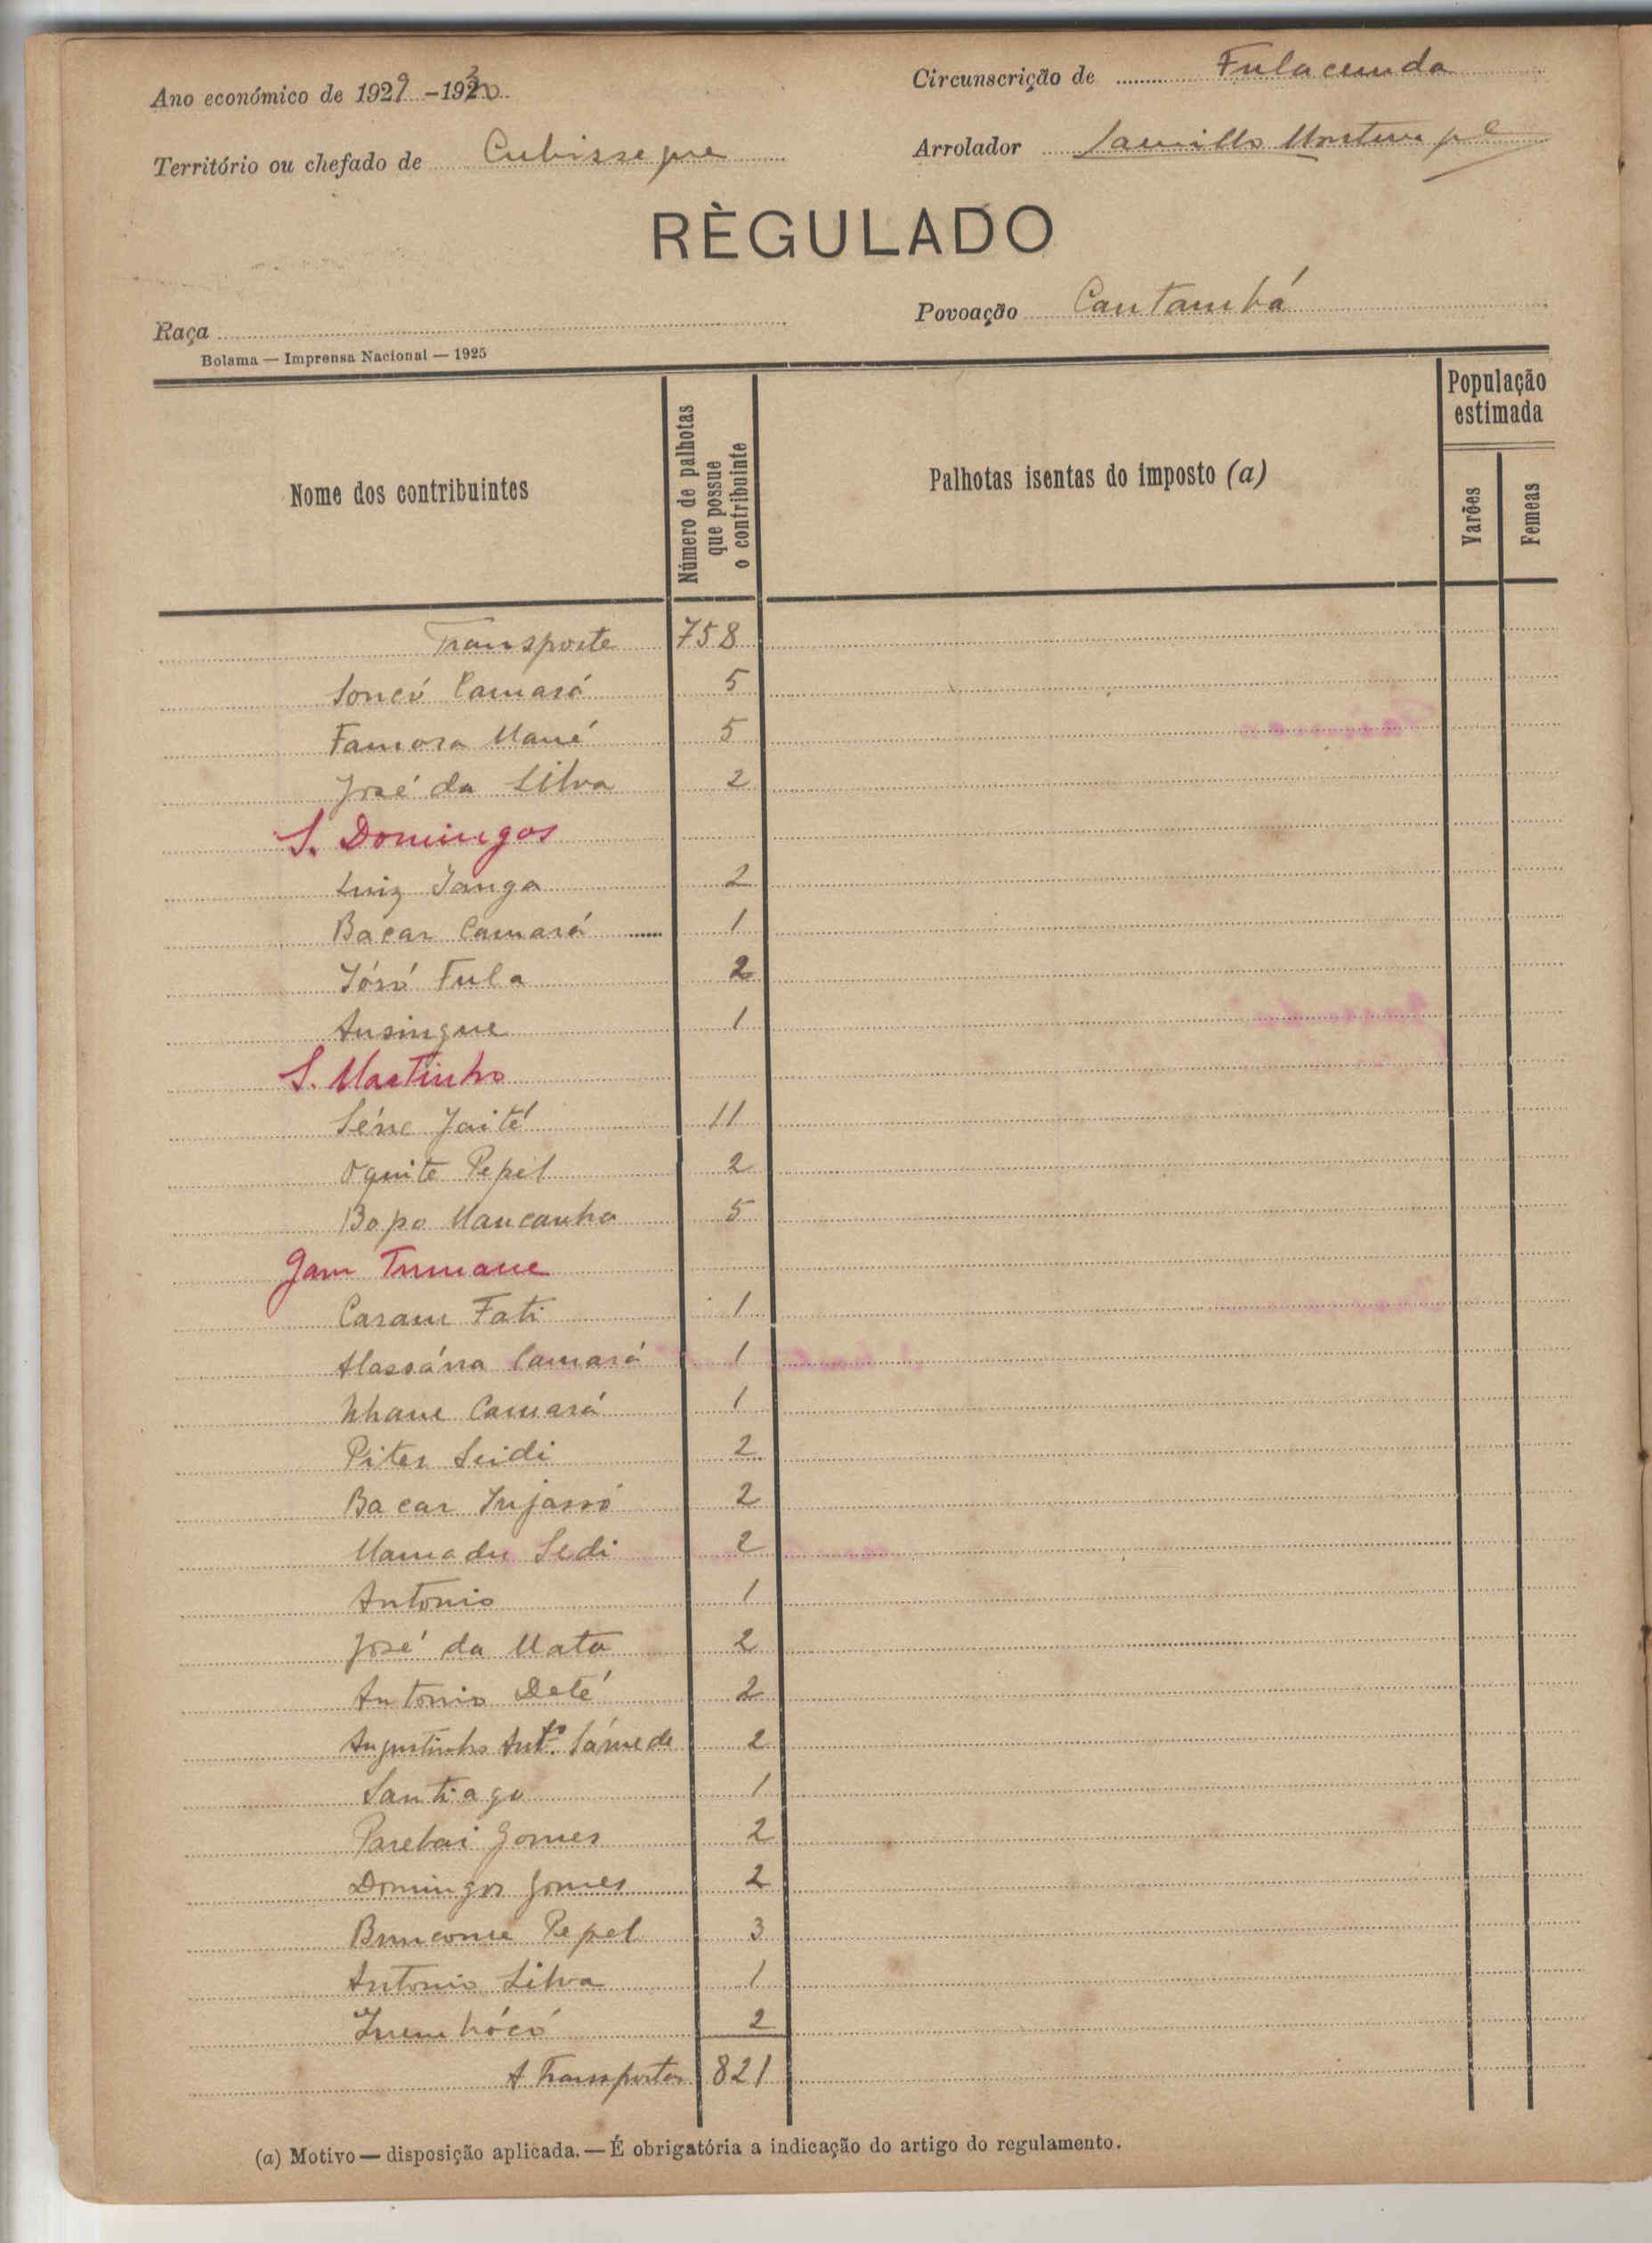 Ano económico de 1929 - 1930
Circunscrição de Fulacunda
Território ou chefado de Cubisseque
Arrolador Camillo Monteiro
RÈGULADO
Povoação Cantambá
Raça
Bolama — Imprensa Nacional — 1925
Nome dos contribuintes
Número de palhotas que possue o contribuinte
Palhotas isentas do imposto (a)
População estimada
Varões
Femeas
Transporte 758
Soncó Camará 5
Famora Mané 5
José da Silva 2
S. Domingos
Luiz Tanga 2
Bacar Camará 1
Fula 2
Ansingue 1
S. Martinho
Séne Jaité 11
Oquite Pepel 2
Bopo Mancanha 5
Jam Tumane
Casam Fati 1
Alassána Camará 1
Nhane Camará 1
Piter Seidi 2
Bacar Injassó 2
Mamadu Sedi 2
Antonio 1
José da Mata 2
Antonio Deté 2
Augustinho Antº. 2
Santiago 1
Gomes 2
Domingos Gomes 2
Pepel 3
Antonio Silva 1
2
A Transportar 821
(a) Motivo — disposição aplicada. — É obrigatória a indicação do artigo do regulamento.